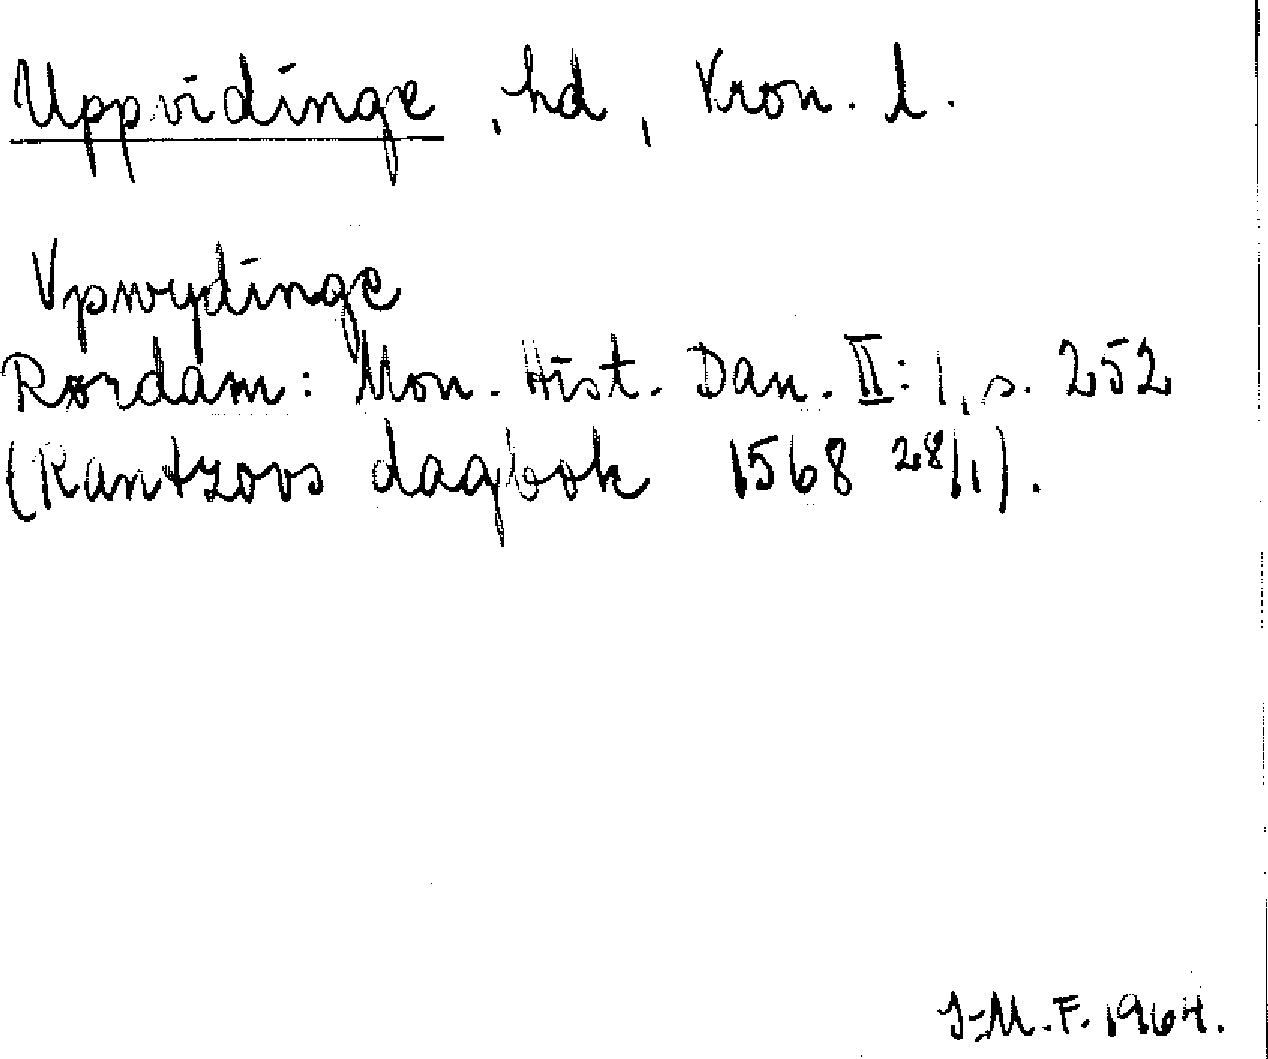 Uppvidinge, hd, Kron. l.
Vpwydinge
Rørdam: Mon. Hist. Dan. II: 1, s. 252
(Rantzovs dagbok 1568 28/1).
J-M.F. 1964.